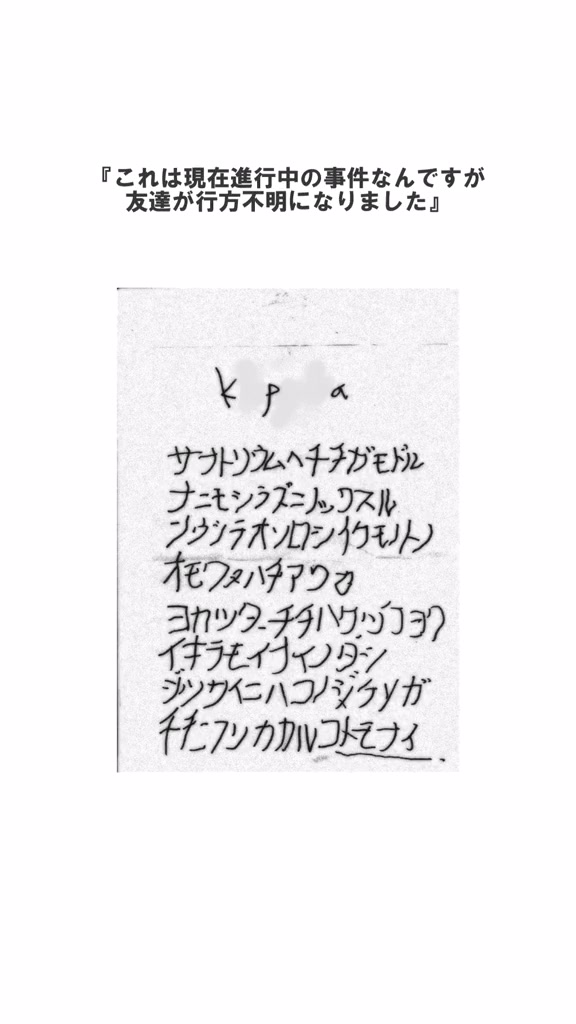 『これは現在進行中の事件なんですが
友達が行方不明になりました』
K p a
サナトリウムヘチチガモドル
ナニモシラズニノックスル
ソウシラオソロシイケモノトノ
オモワヌハチアワセ
ヨカッターチチハケッコヨク
イキテモイナイノダシ
ジッサイニハコノジケンガ
チチニフリカカルコトモナイ.